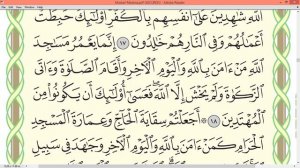 ٱللَّهِ شَٰهِدِينَ عَلَىٰٓ أَنفُسِهِم بِٱلْكُفْرِ أُو۟لَٰٓئِكَ حَبِطَتْ
أَعْمَٰلُهُمْ وَفِى ٱلنَّارِ هُمْ خَٰلِدُونَ ١٧ إِنَّمَا يَعْمُرُ مَسَٰجِدَ
ٱللَّهِ مَنْ ءَامَنَ بِٱللَّهِ وَٱلْيَوْمِ ٱلْءَاخِرِ وَأَقَامَ ٱلصَّلَوٰةَ وَءَاتَى
ٱلزَّكَوٰةَ وَلَمْ يَخْشَ إِلَّا ٱللَّهَ فَعَسَىٰٓ أُو۟لَٰٓئِكَ أَن يَكُونُوا۟ مِنَ
ٱلْمُهْتَدِينَ ١٨ أَجَعَلْتُمْ سِقَايَةَ ٱلْحَآجِّ وَعِمَارَةَ ٱلْمَسْجِدِ
ٱلْحَرَامِ كَمَنْ ءَامَنَ بِٱللَّهِ وَٱلْيَوْمِ ٱلْءَاخِرِ وَجَٰهَدَ فِى سَبِيلِ